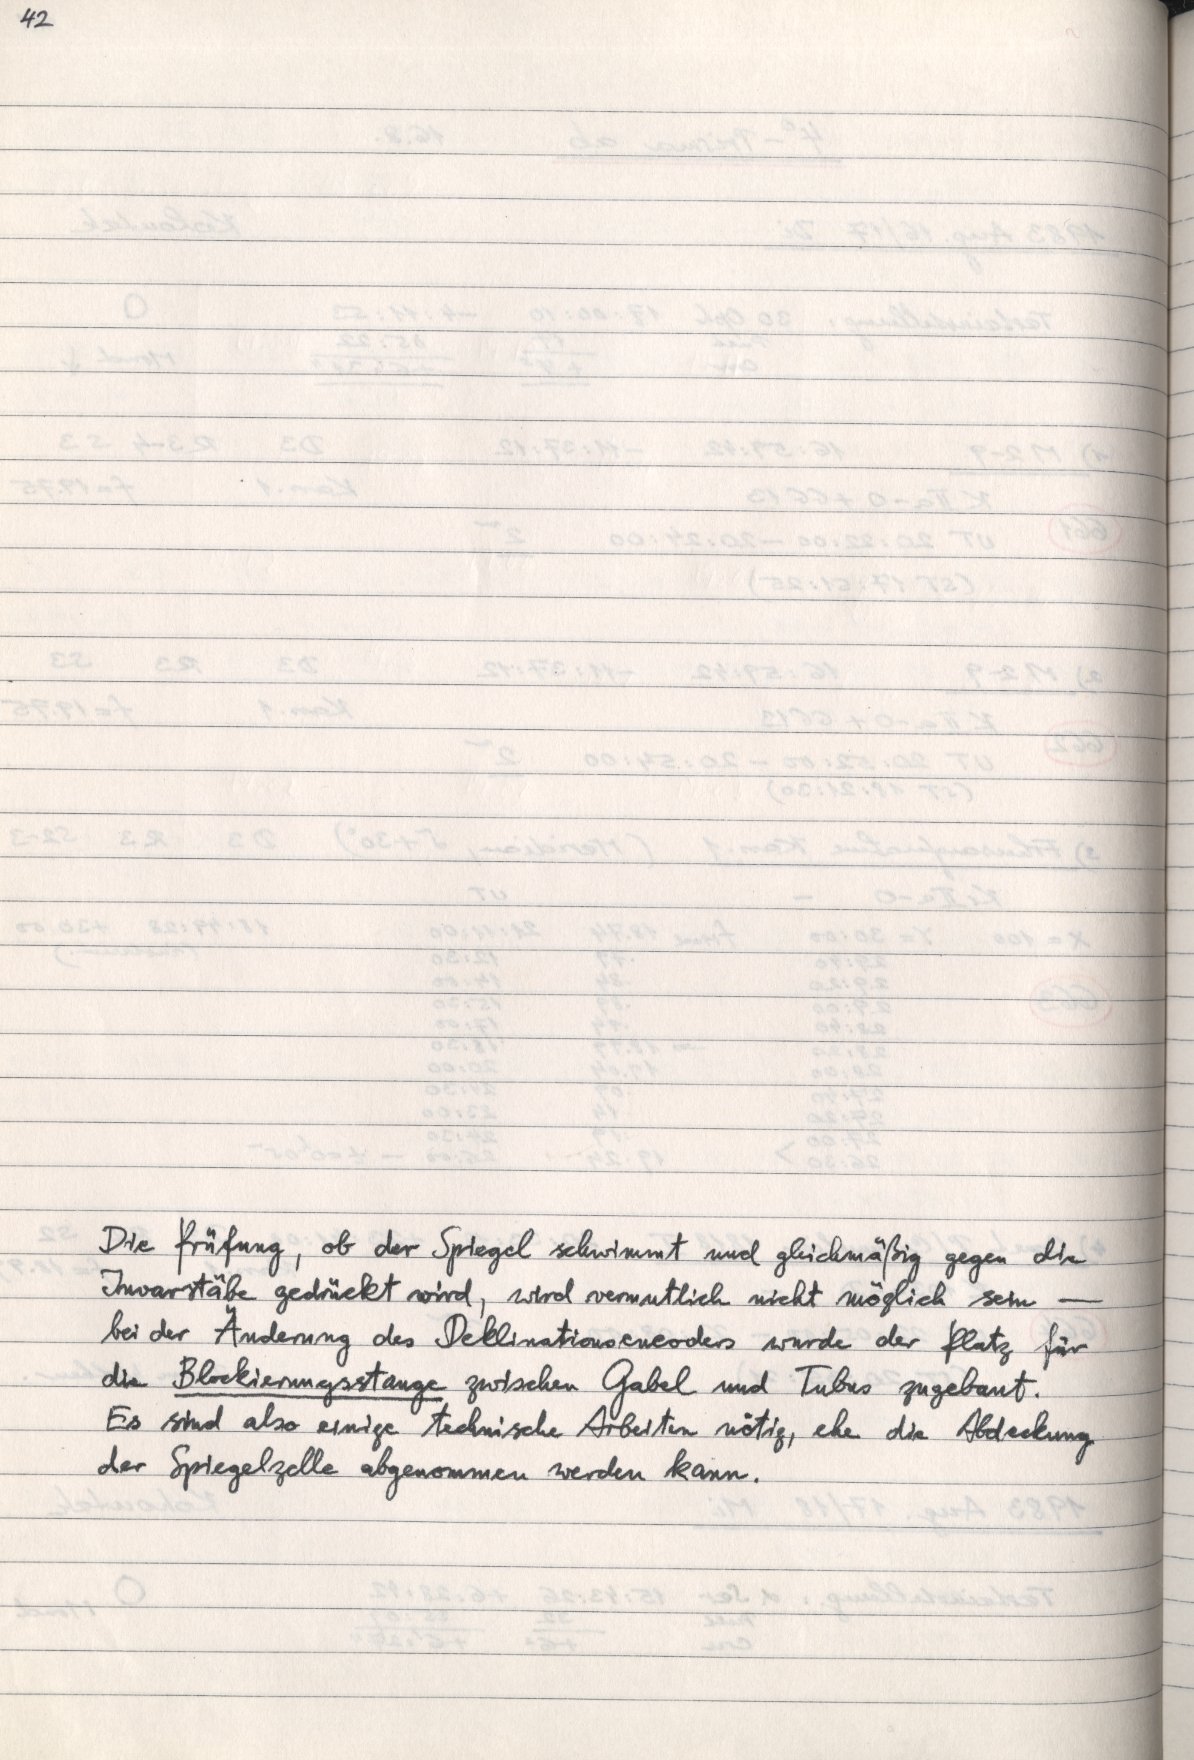 42
Die Prüfung, ob der Spiegel schwimmt und gleichmäßig gegen die
Invarstäbe gedrückt wird, wird vermutlich nicht möglich sein —
bei der Änderung des Deklinationsencoders wurde der Platz für
die Blockierungsstange zwischen Gabel und Tubus zugebaut.
Es sind also einige technische Arbeiten nötig, ehe die Abdeckung
der Spiegelzelle abgenommen werden kann.